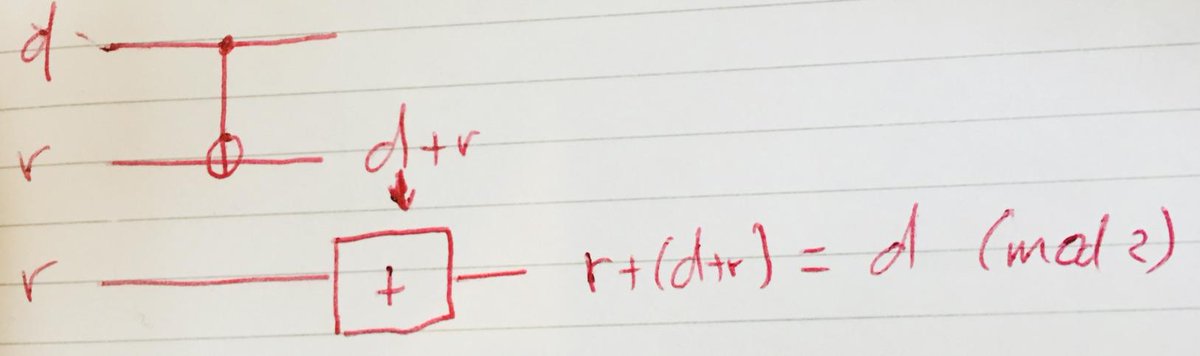 d
r d+r
r + r+(d+r) = d (mod 2)